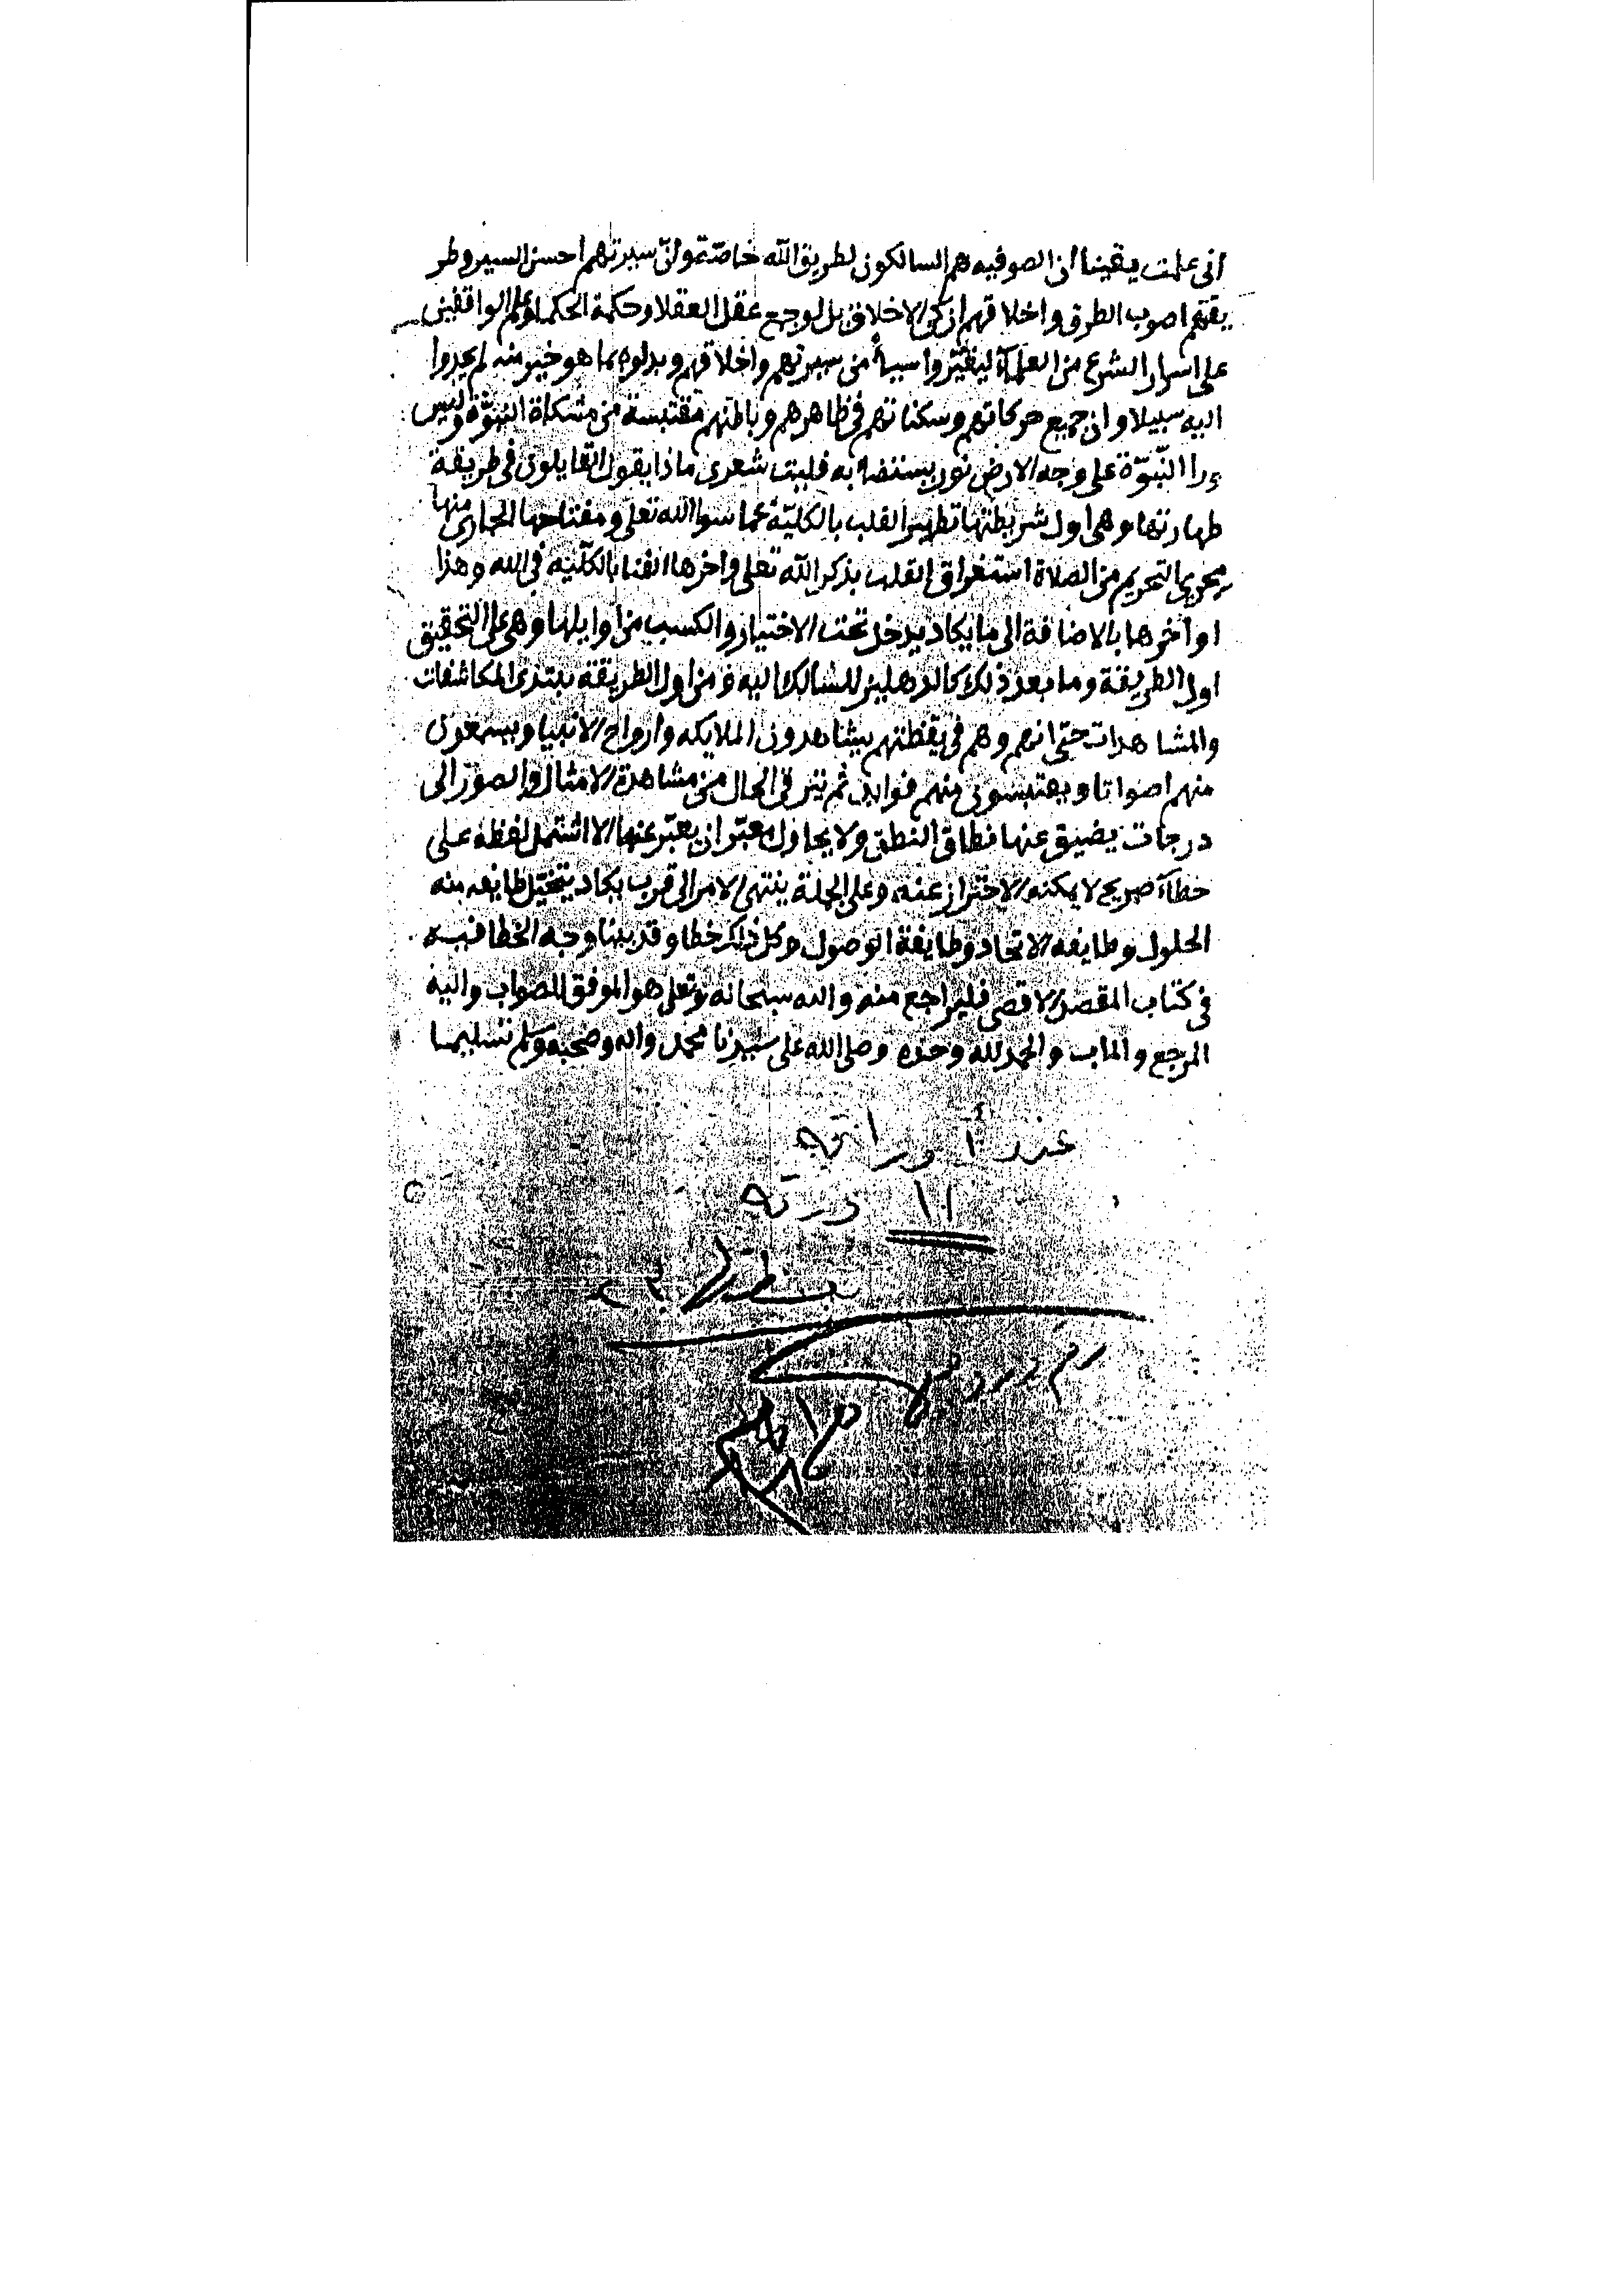 اني علمت يقينا ان الصوفيه هم السالكون لطريق الله خاصّة وانّ سيرتهم احسن السير وطر
يقتهم اصوب الطرق واخلاقهم ازكى الاخلاق بل لو جمع عقل العقلا وحكمة الحكما وعلم الواقفين
على اسرار الشرع من العلمآء ليغيّروا سيأ من سيرتهم واخلاقهم ويبدلوه بما هو خير منه لم يجدوا
اليه سبيلا وان جميع حركاتهم وسكناتهم في ظاهرهم وباطنهم مقتبسة من مشكاة النبوّة وليس
ورا النّبوّة على وجه الارض نور يستضا به فليت شعري ماذا يقول القايلون في طريقة
طهارتها وهي اول شريطتها تطهير القلب بالكليّة عما سوا الله تعلى ومفتاحها الجاري منها
مجرى التحريم من الصلاة استغراق القلب بذكر الله تعلى واخرها الفنا بالكلّيه في الله وهذا
اواخرها بالاضافة الى ما يكاد يدخل تحت الاختيار والكسب من اوايلها وهي على التحقيق
اول الطريقة وما بعد ذلك كالدهليز للسالك اليه ومن اول الطريقة يبتدئ المكاشفات
والمشاهدات حتى انهم وهم في يقظتهم يشاهدون الملايكه وارواح الانبيا ويسمعون
منهم اصواتا ويقتبسون منهم فوايد ثم يترقى الحال من مشاهدة الامثال والصور الى
درجات يضيق عنها نطاق النطق ولا يحاول معبّر ان يعبّر عنها الا اشتمل لفظه على
خطآء صريح لا يمكنه الاحتراز عنه وعلى الجملة ينتهي الامر الى قرب يكاد يتخيّل طايفه منه
الحلول وطايفه الاتحاد وطايفة الوصول وكل ذلك خطا وقد بينا وجه الخطا فيه
في كتاب المقصد الاقصى فليراجع منه والله سبحانه وتعلى هو الموفق للصواب واليه
المرجع والمآب والحمد لله وحده وصلى الله على سيدنا محمد واله وصحبه وسلم تسليما
عدد أوراقه
١١ ورقه